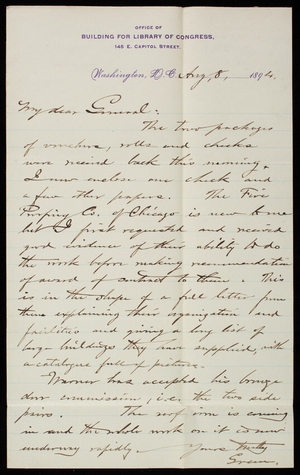 OFFICE OF
BUILDING FOR LIBRARY OF CONGRESS,
145 E. CAPITOL STREET.
Washington, D.C. Aug. 8, 1894.
My dear General:
The two packages
of vouchers, rolls and checks
were received back this morning.
I now enclose one check and
a few other papers. The Fire
Proofing Co. of Chicago is new to me
but I first requested and received
good evidence of their ability to do
the work before making recommendation
of award of contract to them. This
is in the shape of a full letter from
them explaining their organization and
facilities and giving a long list of
large buildings they have supplied, with
a catalogue full of pictures.
Warner has accepted his bronze
door commission, i.e. the two side
pairs. The roof iron is coming
in and the whole work on it is now
underway rapidly. Yours truly
Green.